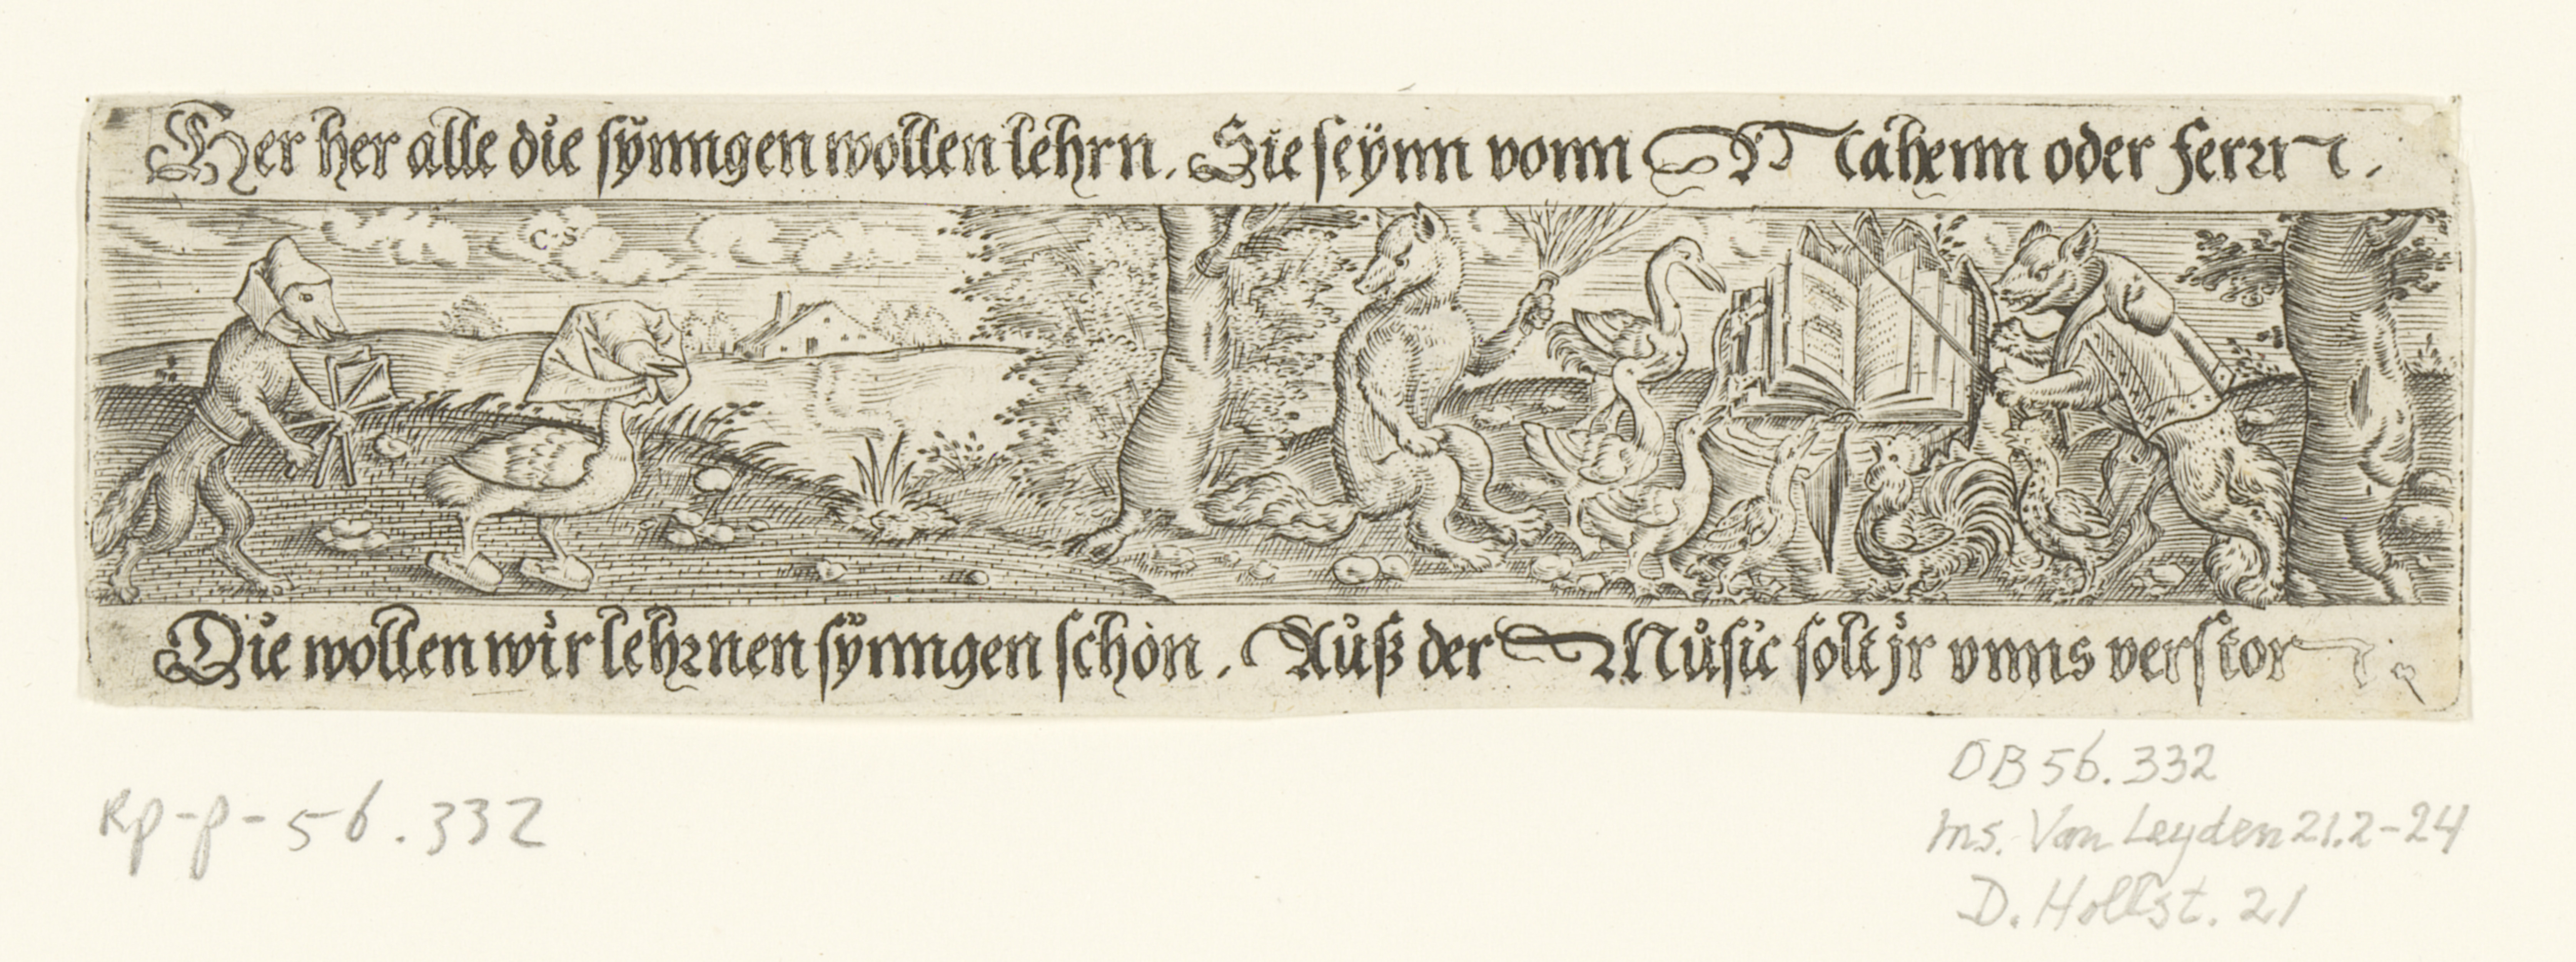 Her her alle die sÿnngen wollen lehrn. Sie seÿnn vonn Nahenn oder fern.
C·S
Die wollen wir lehrnen sÿnngen schön. Auß der Músic solt jr vnns verston
RP-P-56.332
OB 56.332
ms. Van Leyden 21.2-24
D. Hollst. 21